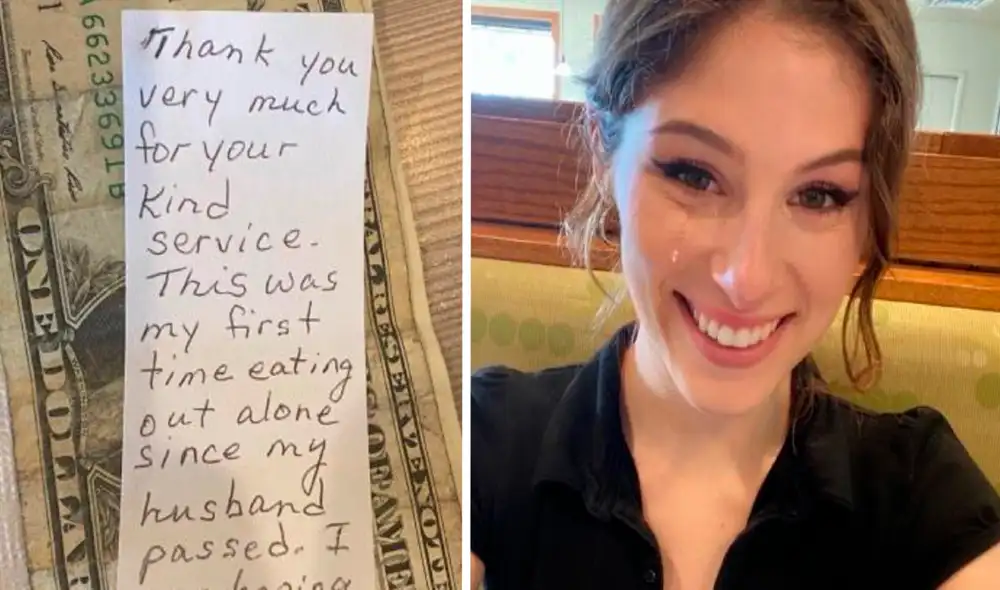 Thank you
very much
for your
kind
service.
This was
my first
time eating
out alone
since my
husband
passed. I
66233691B
ONE DOLLAR